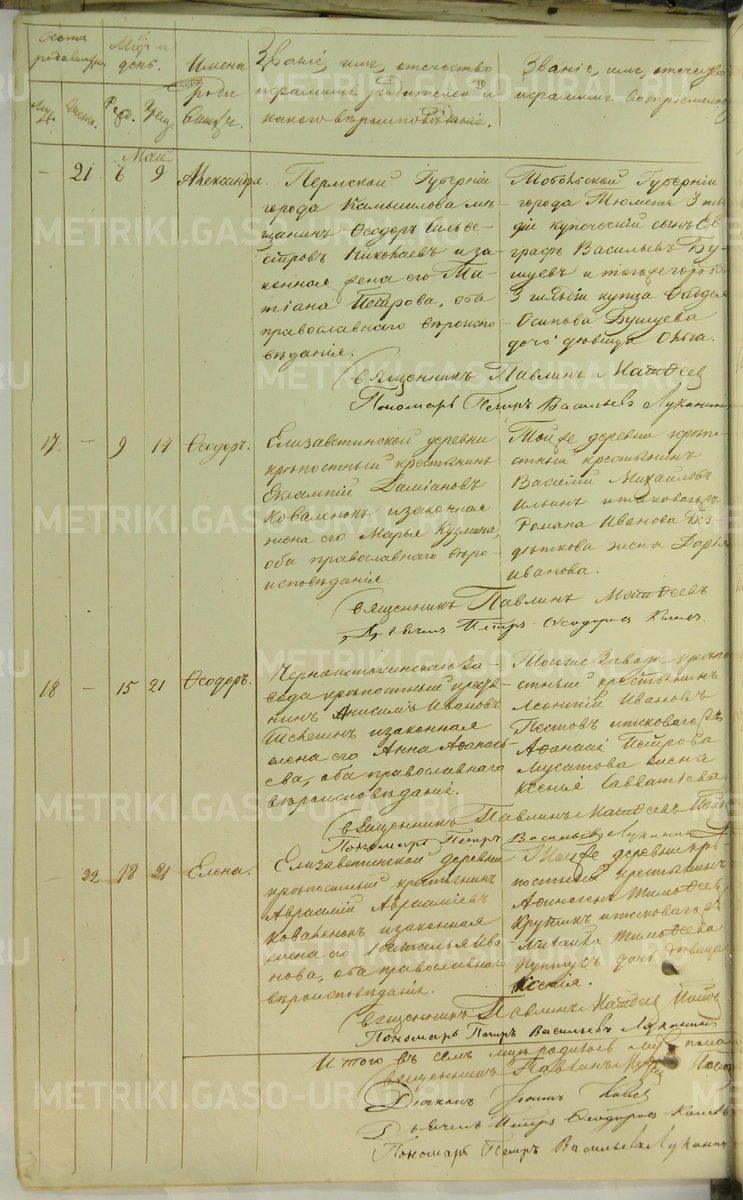 Счетъ родившихся
Мѣсяцъ и день.
Имена родившихся.
Званіе, имя, отчество и фамилія родителей и какого вѣроисповѣданія.
Званіе, имя, отчество и фамилія воспріемниковъ
Май
21. 6 9 Александра.
Пермской Губерніи
города Камышлова мѣ-
щанинъ Ѳеодоръ Сильве-
стровъ Николаевъ и за-
конная жена его Та-
тіана Петрова, оба
православнаго вѣроиспо-
вѣданія.
Тобольской Губерніи
города Тюменя 3 гиль-
діи купеческій сынъ Ев-
графъ Васильевъ Бу-
шуевъ и того же города
3 гильдіи купца
Осипова Бушуева
дочь дѣвица Ольга.
Священникъ Павлинъ Матѳеев
Пономарь Петръ Васильевъ Луканинъ
17. — 9 14 Ѳеодоръ.
Елизаветинской деревни
крѣпостный крестьянинъ
Евлампій Даміановъ
Коваленокъ и законная
жена его Марья Кузмина,
оба православнаго вѣро-
исповѣданія.
Той же деревни крѣпо-
стный крестьянинъ
Василій Михайловъ
Ильинъ и таковаго жъ
Романа Иванова
жена Дарья
Иванова.
Священникъ Павлинъ Матѳеевъ
Дьячекъ Петръ Ѳеодоровъ
18 — 15 21 Ѳеодоръ.
Черноисточинскаго За-
вода крѣпостный крестья-
нинъ Анисимъ Ивановъ
и законная
жена его Анна Аѳанась-
ева, оба православнаго
вѣроисповѣданія.
Тогоже Завода крѣпо-
стный крестьянинъ
Леонтій Ивановъ
Пестовъ и таковаго жъ
Аѳанасія Петрова
Мусатова жена
Ксенія Савватіева.
Священникъ Павлинъ Матѳеевъ
Пономарь Петръ Васильевъ Луканинъ
— 22 18 21 Елена.
Елизаветинской деревни
крѣпостный крестьянинъ
Авраамій Авраміевъ
Коваленокъ и законная
жена его Наталья Ива-
нова, оба православнаго
вѣроисповѣданія.
Той же деревни крѣ-
постный крестьянинъ
Аѳиногенъ Тимоѳеев
Крутикъ и таковаго жъ
Тимоѳеева
дочь дѣвица
Ксенія.
Священникъ Павлинъ Матѳеев
Пономарь Петръ Васильевъ Луканинъ
Итого въ семъ
Священникъ Павлинъ
Діаконъ
Дьячекъ Петръ Ѳеодоровъ
Пономарь Петръ Васильевъ Луканинъ
METRIKI.GASO-URAL.RU